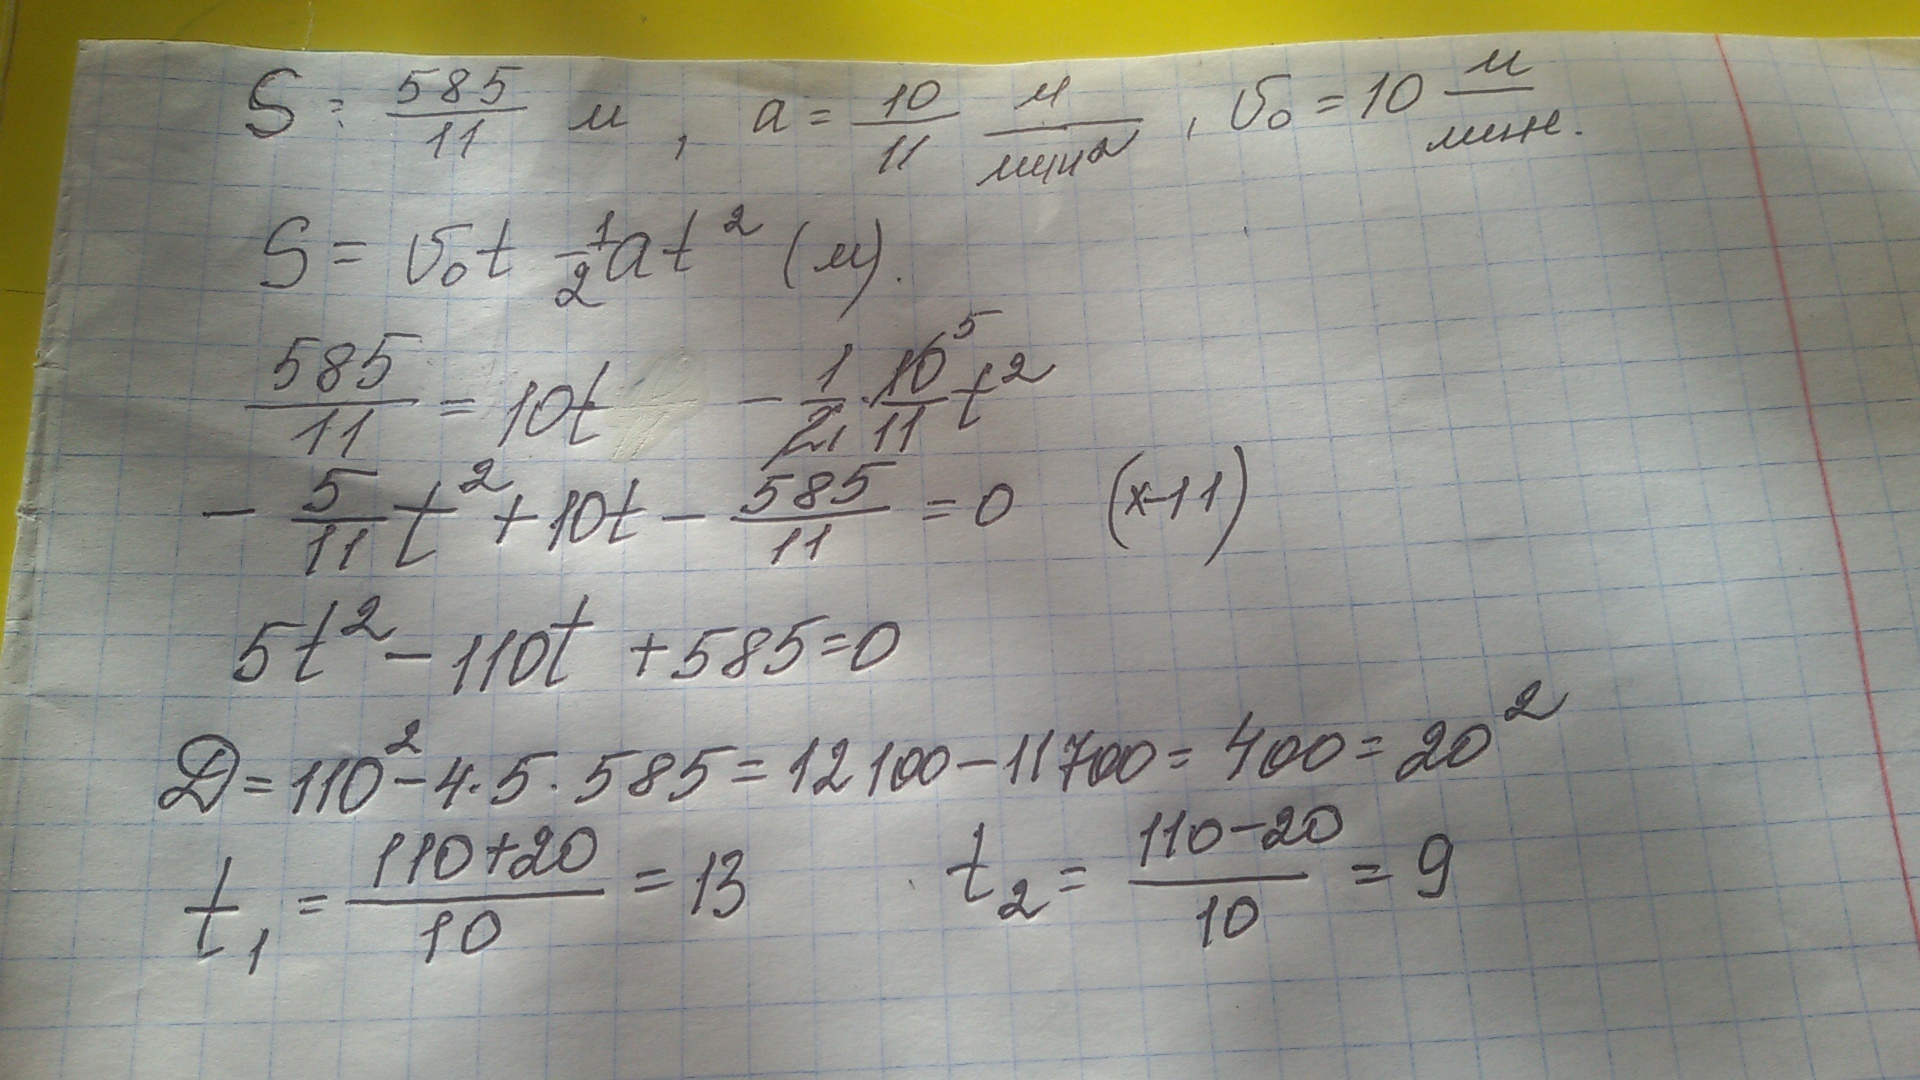 S = 585/11 м, a = 10/11 м/мин², v₀ = 10 м/мин.
S = v₀t - 1/2 at² (м).
585/11 = 10t - 1/2 · 10/11 t² 5
- 5/11 t² + 10t - 585/11 = 0 (x-11)
5t² - 110t + 585 = 0
D = 110² - 4·5·585 = 12100 - 11700 = 400 = 20²
t₁ = (110+20)/10 = 13 t₂ = (110-20)/10 = 9